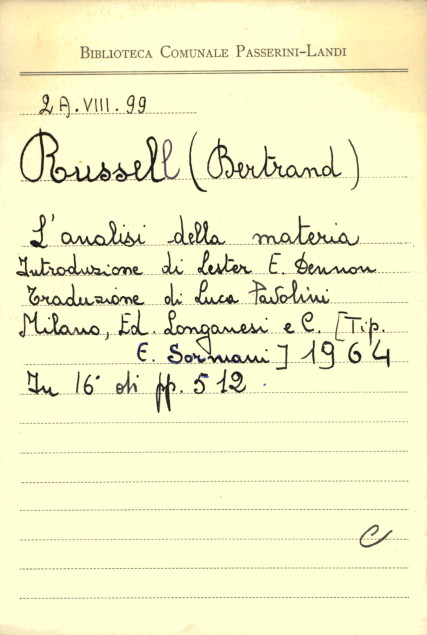 BIBLIOTECA COMUNALE PASSERINI-LANDI
2A.VIII.99
Russell (Bertrand)
L'analisi della materia
Introduzione di Lester E. Dennon
Traduzione di Luca Pavolini
Milano, Ed. Longanesi e C. [Tip.
E. Sormani] 1964
In 16° di pp. 512.
C